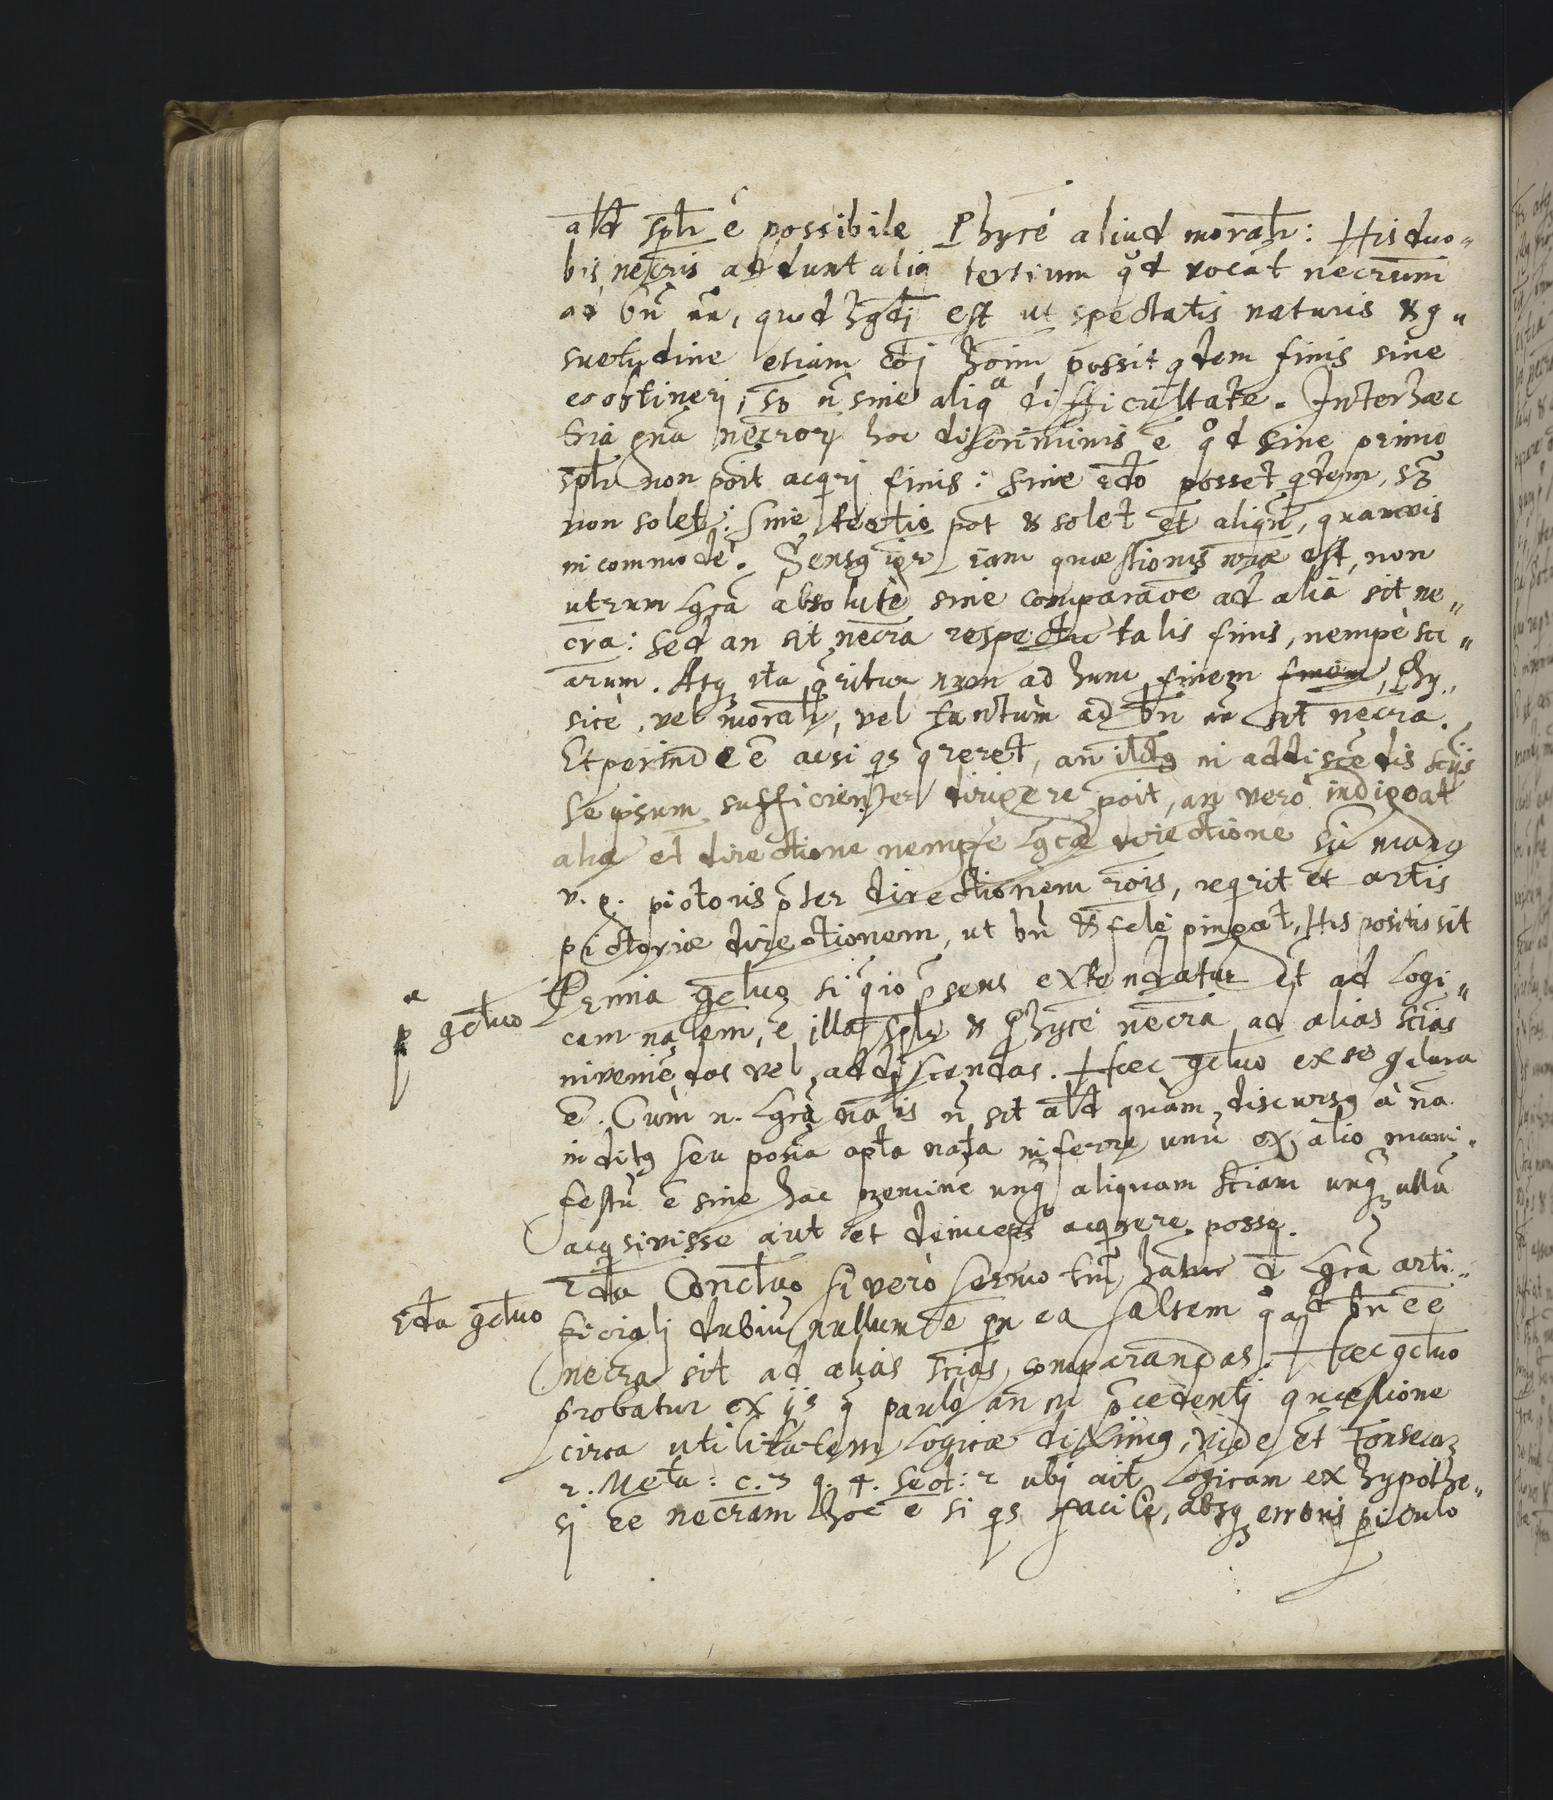 ald splr ē possibile Physcè aliud moralr: His duo„
bus necris addunt aliq tertium qd vocāt necrum
ad bn̄ eē, quod hgdj est ut spectatis naturis & 9„
suetudine etiam coi hoim possit qdem finis sine
eo obtineri, sʒ n̄ sine aliqa difficultate. Inter hæc
tria gna necrorʒ hoc discriminis ē qd sine primo
splr non poit acqrj finis: sine 2do posset qdem, sʒ
non solet: sine tertio pot & solet et aliqn̄, quamvis
incommodè. Sensq igr iam quæstionis nræ est, non
utrum Lgca absolutè sine comparaoe ad alia sit ne„
cra: sed an sit necra respectu talis finis, nempè sci„
arum. Atqʒ ita qritur num ad hunc finem finem, Phy„
sicè, vel moralr, vel tantum ad bn̄ eē sit necra.
Et perinde ē acsi qs qreret, an illtq in addiscēdis sciis
seipsum sufficienter dirigere poit, an verò indigeat
aliâ et directione nempe Lgcæ directione sic manq
v. g. pictoris pter directionem rois, reqrit et artis
pictoriæ directionem, ut bn̄ & fele pingat. His positis sit
Prima 9cluo si qio psens extendatur et ad Logi„
cam nalem, ē illa splr & Physcè necra ad alias scias
inveniēdas vel addiscendas. Hæc 9cluo ex se 9clara
ē. Cum n. Lgca nalis n̄ sit ald quàm discursq à na
inditq seu posia apta nata inferre unū ex alio mani„
festū ē sine hac neminē unqʒ aliquam sciam unqʒ ullā
acqsivisse aut et deinceps acqrere posse.
2da Concluo si verò sermo tm̄ hatur d Lgca arti„
ficialj dubiū nullum ē qn ea saltem qad bn̄ eē
necra sit ad alias scias comparandas. Hæc 9cluo
probatur ex ijs q paulò an in pcedentj quæstione
circa utilitatem Logicæ diximq, vide et Fonsecaʒ
2. Meta: c. 3 q. 4. sect: 2 ubj ait Logicam ex hypothe„
sj eē necram hoc ē si qs facilè, absqʒ erroris piculo
pa 9cluo
2da 9cluo